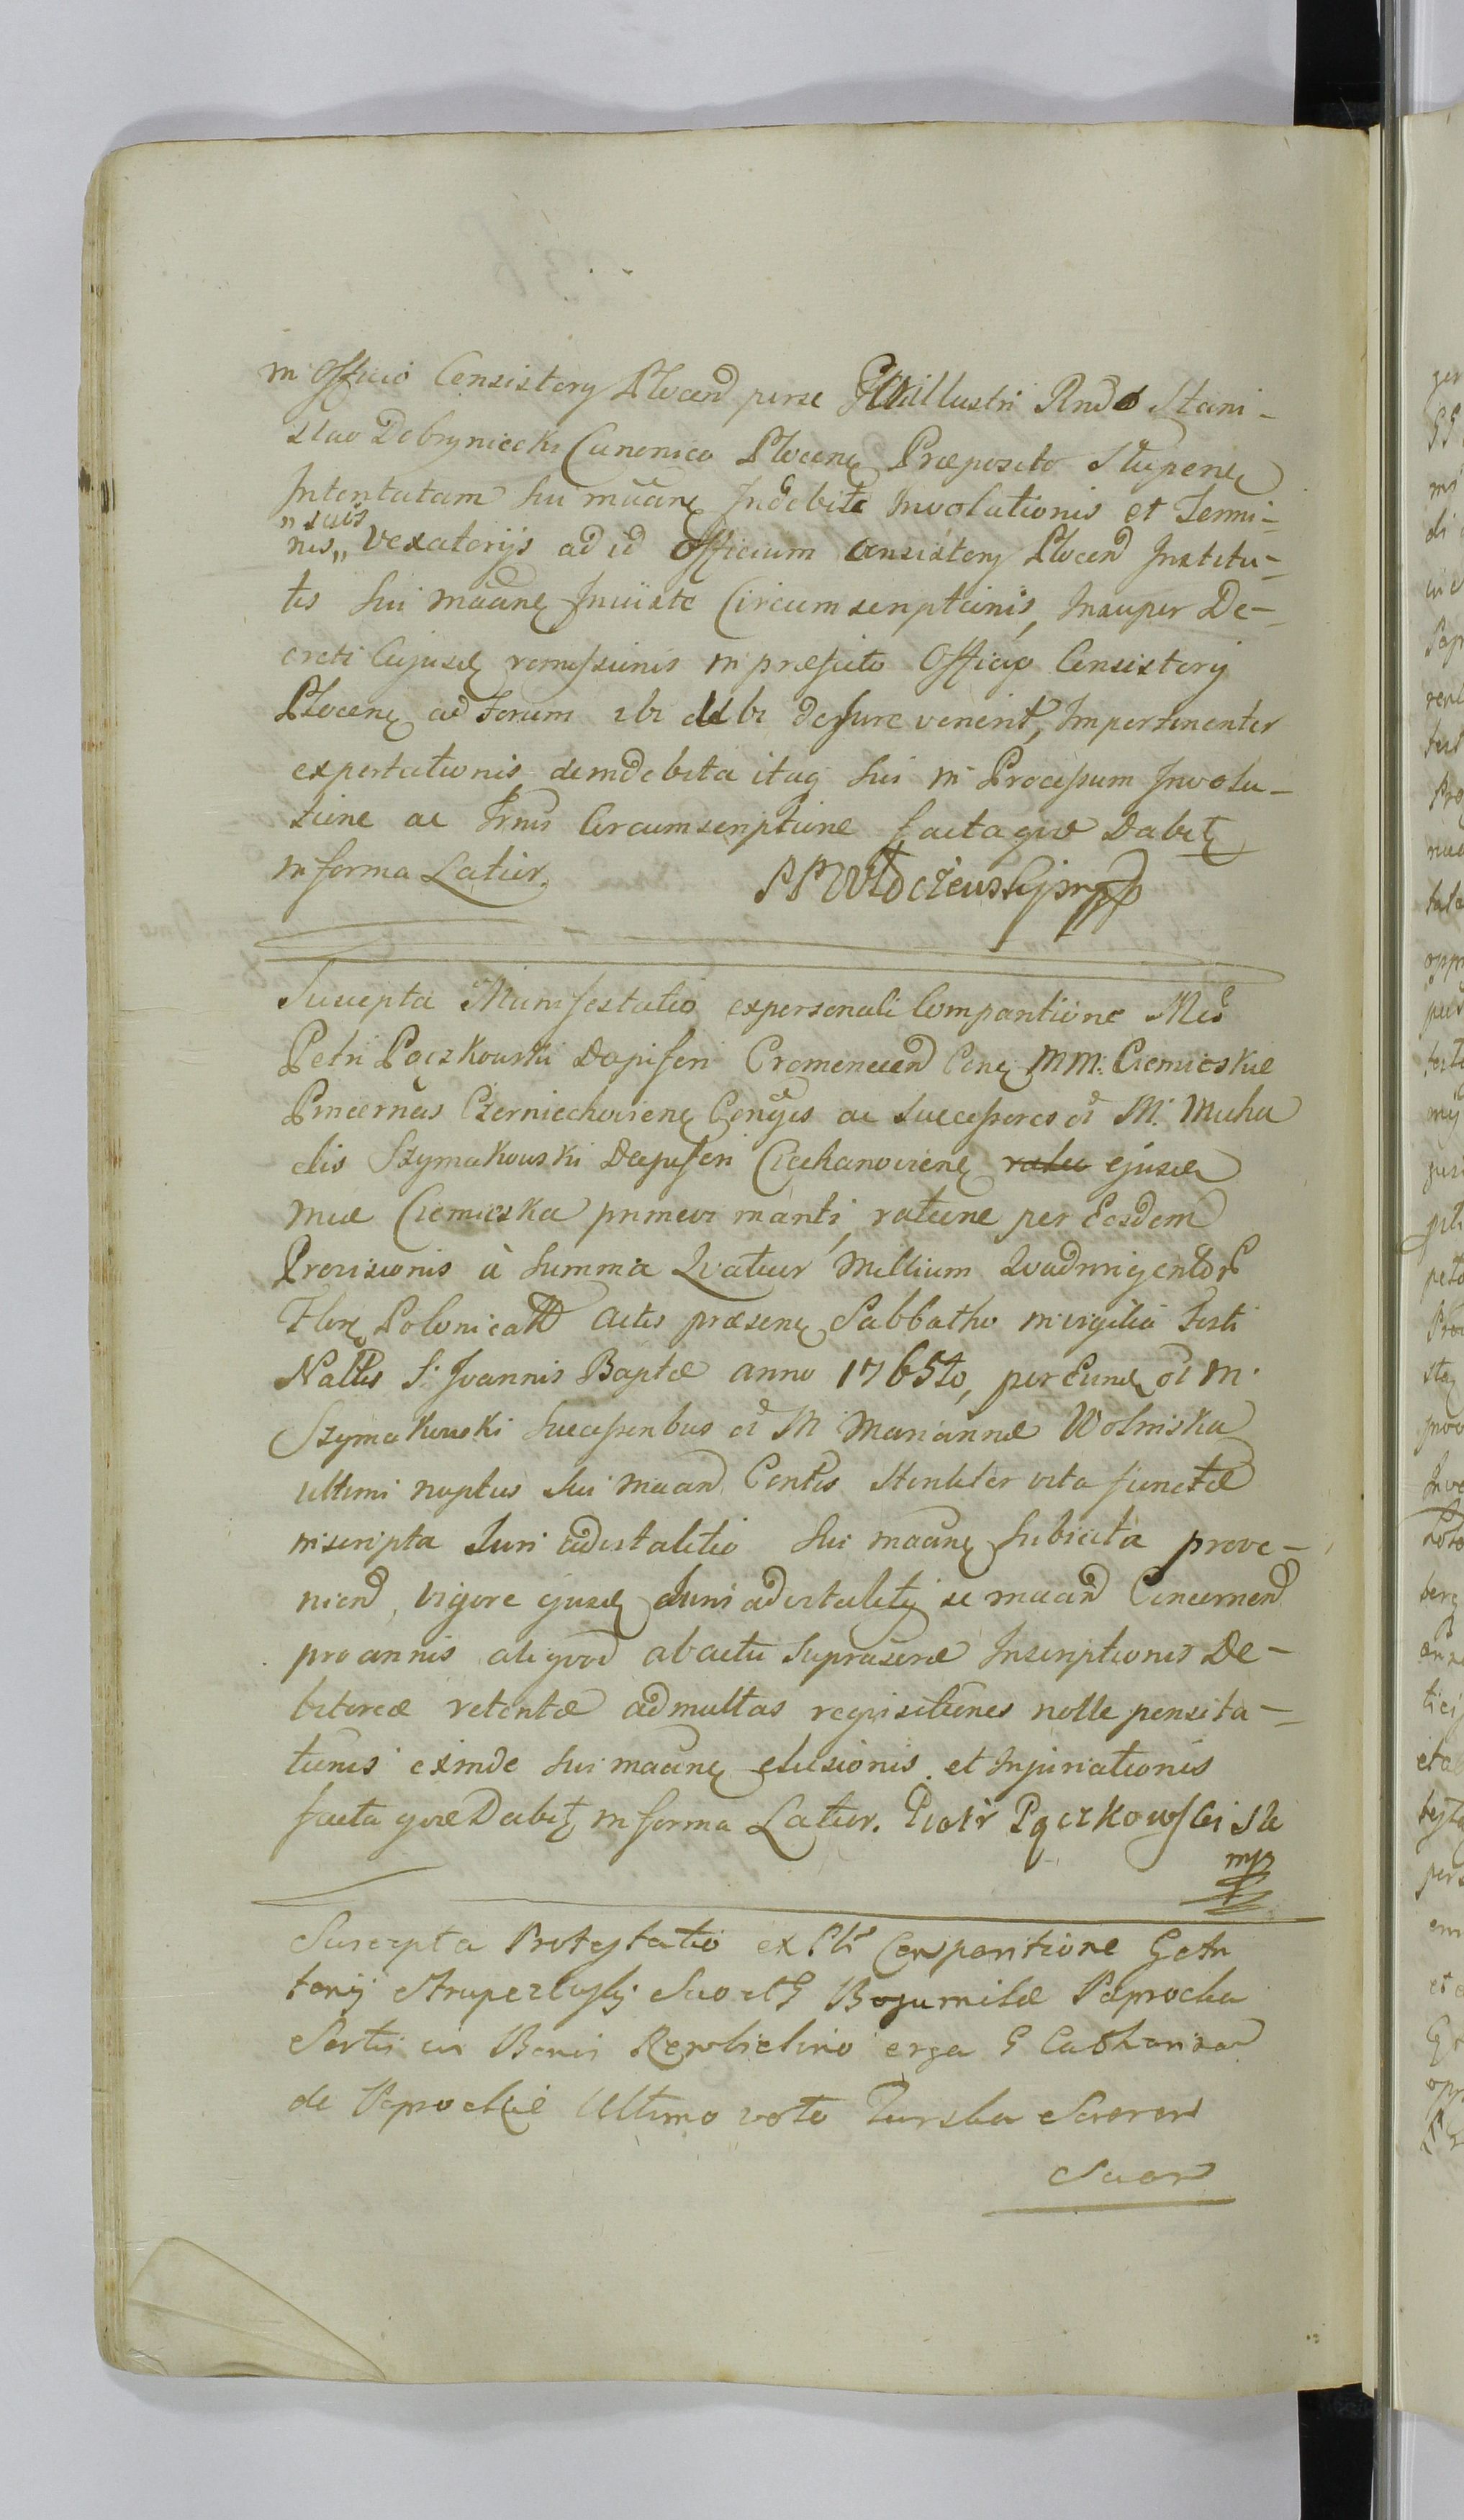 in Officio Consistory Plocen perse Perillustri Rndo Stani-
slao Dobrzniecki Canonico Plocens Præposito Stupens
Intentatam sui maans Indebitæ Involutionis et Termi-
nis „ suis „ vexatorijs ad id Officium Consistory Plocen Institu-
tis sui maans Iniuste Circumscriptionis, Insuper De-
creti Cujusd remissionis in præfato Officio Consistorij
Plocens ad Forum ibi ubi de Jure venerit, Impertinenter
expertationis deindebita itaq sui in Processum Involu-
tione ac Trmis Circumscriptione facta que Dabit
in forma Latior. PP Włoczewski mpp
Suscepta Manifestatio expersonali Comparitione Mci
Petri Pączkowski Dapiferi Cremenecen Cons MM: Ciemieskie
Pincernas Czerniechoviens Conjges ac Successores ol M. Micha
elis Szymakowski Dapiferi Ciechanoviens ejusd
Mcæ Ciemieska primevi mariti, ratione per Eosdem
Provisionis à Summa Qvatuor Millium Qvadringentor
Flor Polonicall Actis præsens Sabbatho in vigilia Festi
Nattis S. Joannis Baptæ anno 1765to, per Eund ol M.
Szymakowski Successoribus ol M Mariannæ Wolniska
ultimi nuptus sui maan Contis Steriliter vita functæ
inscripta Juri advitalitio sui maans subiecta prove-
nien, vigore ejusd Juris advitalitij se maan Concernen
pro annis aliqvod ab actu Suprascræ Inscriptionis De-
bitoreæ retentæ ad multas reqvisitiones nolle pensita-
tionis exinde sui maans elusionis et Injuriationis
facta qvæ Dabit in forma Latior. Piotr Pączkowski SK
mp
Suscepta Protestatio ex Pli Comparitione G An
tonij Strupczewskij Suo et G Bogumilæ Paprocka
Sortis in Bonis Rembielino erga G Catharina
de Paprockie Ultimo voto Turska Sororem
Suam